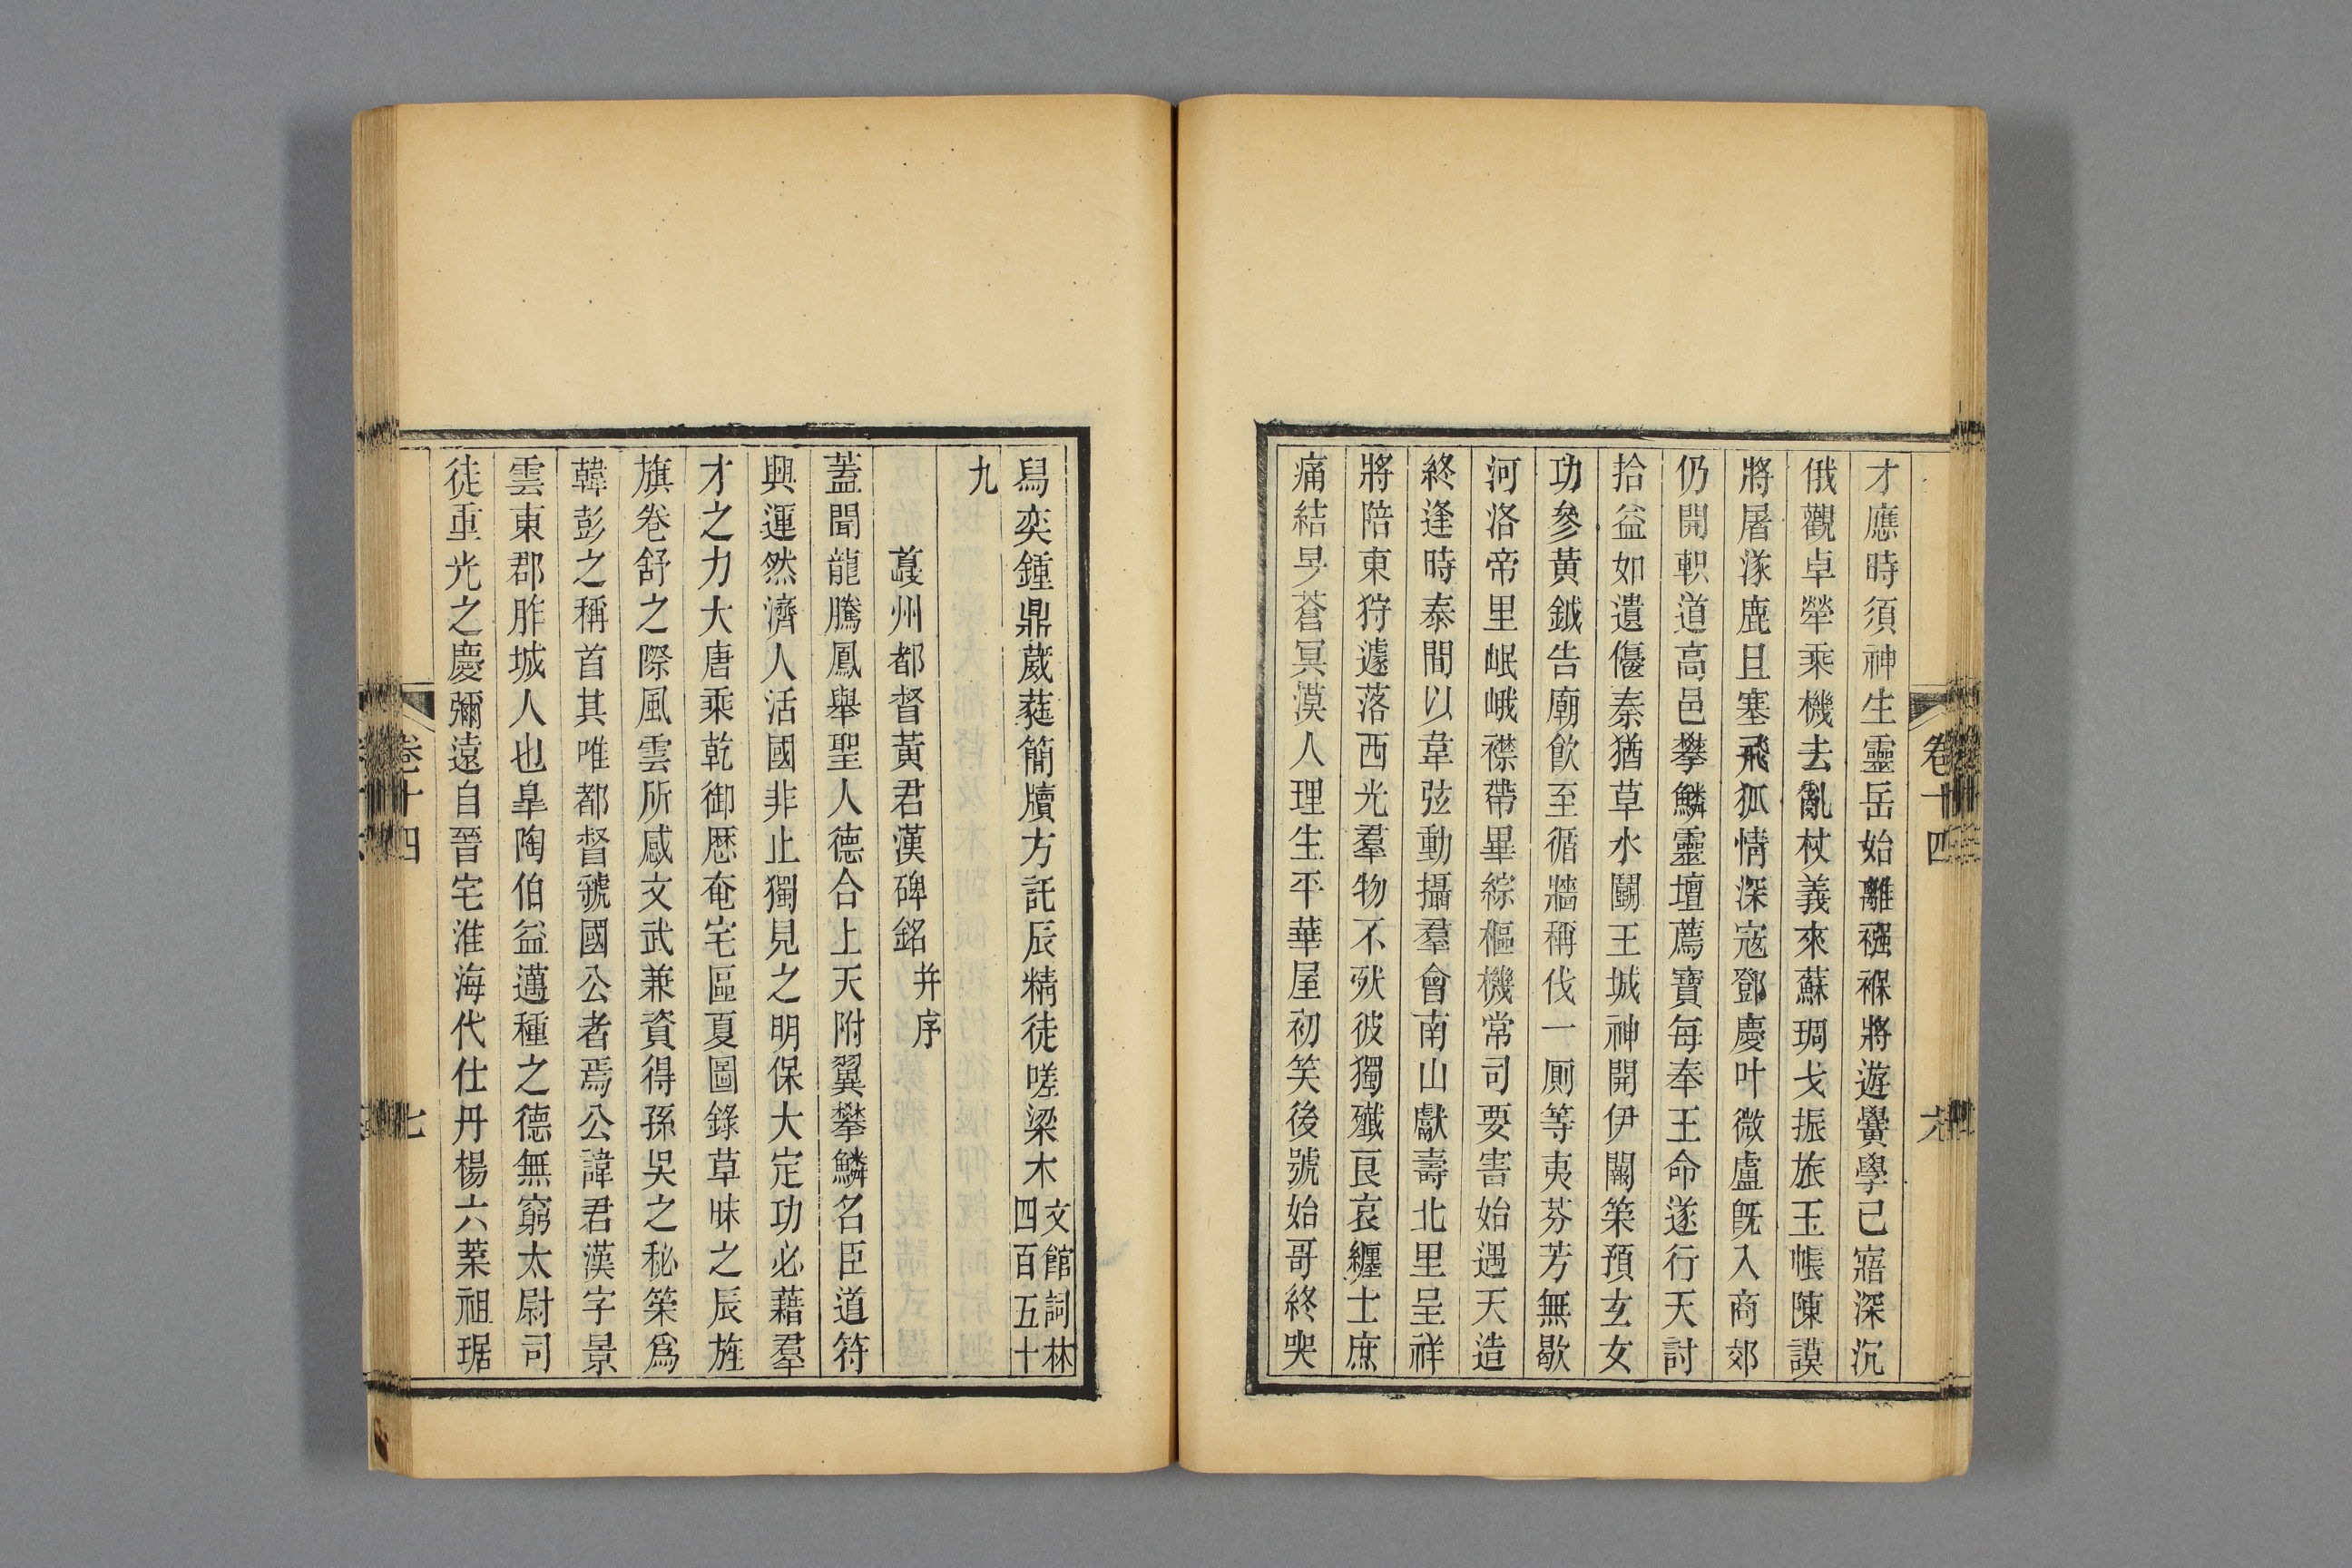 才應時須神生靈岳始離襁褓將遊黌學已寤深沉
俄觀卓犖乘機去亂杖義來蘇琱戈振旅玉帳陳謨
將屠涿鹿且塞飛狐情深寇鄧慶叶微盧旣入商郊
仍開軹道高邑攀鱗靈壇薦寶每奉王命遂行天討
拾益如遺偃秦猶草水鬭王城神開伊闕筞預玄女
功參黃鉞告廟飮至循牆稱伐一厠等夷芬芳無歇
河洛帝里岷峨襟帶畢綜樞機常司要害始遇天造
終逢時泰間以韋弦動攝羣會南山獻壽北里呈祥
將陪東狩遽落西光羣物不殀彼獨殲良哀纏士庶
痛結旻蒼冥漠人理生平華屋初笑後號始哥終哭
卷十四
六
舃奕鍾鼎葳蕤簡牘方託辰精徒嗟梁木文館詞林四百五十
九
蕿州都督黃君漢碑銘并序
蓋聞龍騰鳳舉聖人德合上天附翼攀鱗名臣道符
興運然濟人活國非止獨見之明保大定功必藉羣
才之力大唐乘乾御厯奄宅區夏圖錄草昧之辰旌
旗卷舒之際風雲所感文武兼資得孫吳之秘筞爲
韓彭之稱首其唯都督虢國公者焉公諱君漢字景
雲東郡胙城人也臯陶伯益邁種之德無窮太尉司
徒重光之慶彌遠自晉宅淮海代仕丹楊六葉祖琚
卷十四
七